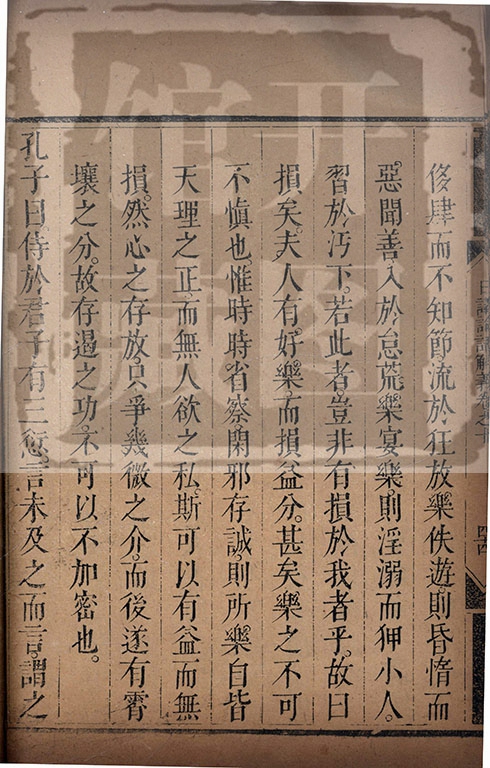 侈肆而不知節流於狂放樂佚遊則昏惰而
惡聞善入於怠荒樂宴樂則淫溺而狎小人。
習於汚下。若此者。豈非有損於我者乎。故曰
損矣。夫人有。好。樂。而損益分。甚矣樂之不可
不愼也。惟時時省察閑邪存誠。則所。樂。自皆
天理之正。而無人欲之私。斯可以有益而無
損。然心之存放。只爭幾微之介。而後遂有霄
壤之分。故存遏之功。不可以不加密也。
孔子曰。侍於君子有三愆。言未及之而言。謂之
日講論語解義卷之十
四四